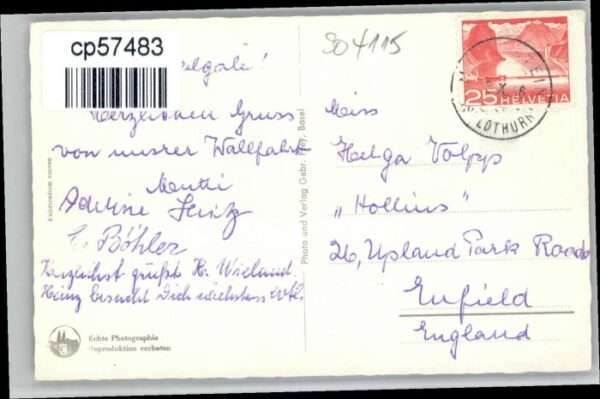 cp57483
SO 4115
25 HELVETIA
LOTHURN
Herzlichen Gruss
von unsrer Wallfahrt
Mutti
Adeline Fritz
E. Böhler
Herzlichst grüßt H. Wieland.
Heinz besucht Dich nächstens
Miss
Helga Volpp
„Hollins"
26, Upland Park Road
Enfield
England
Photo und Verlag Gebr. Basel
Echte Photographie
Reproduktion verboten